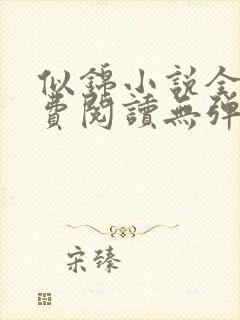 似錦小說全
費閱讀無彈
宋臻